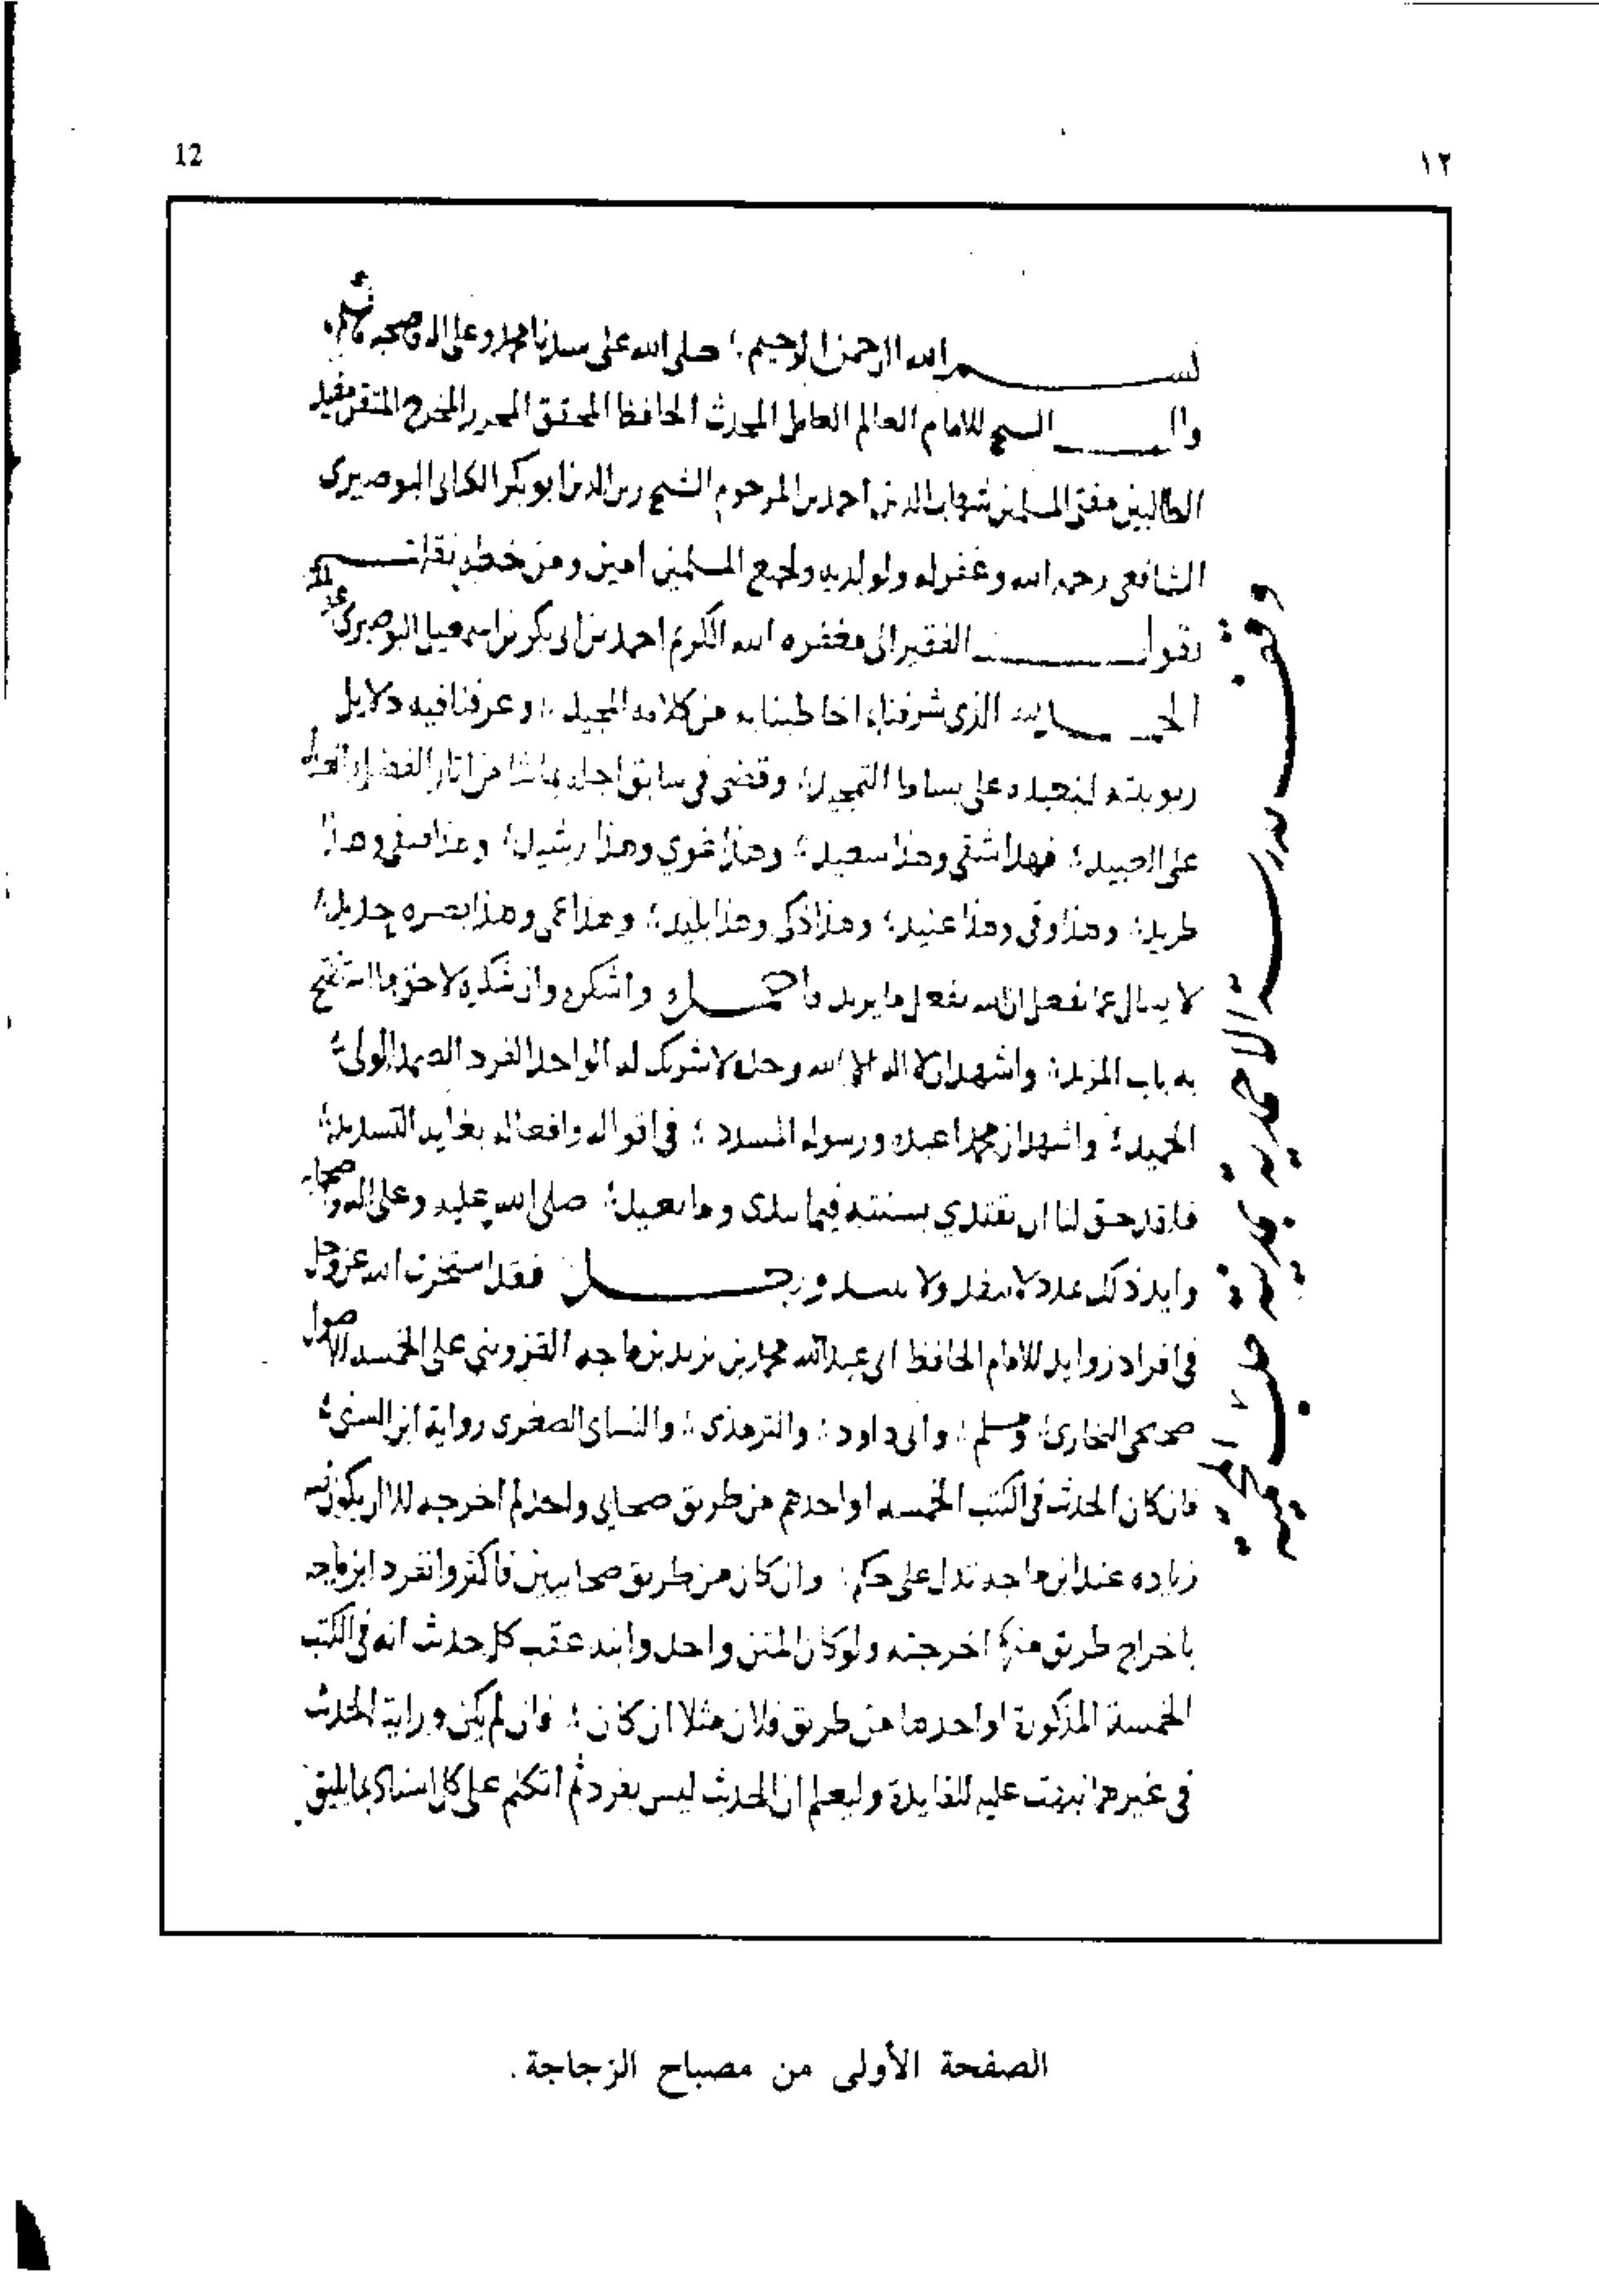 12
١٢
بســـم الله الرحمن الرحيم ؛ صلى الله على سيدنا محمد وعلى اله وصحبه وسلم
قال الشيخ الامام العالم العامل المحدث الحافظ المحقق المحرر المخرج المتقن مفيد
الطالبين مفتى المسلمين شهاب الدين احمد بن المرحوم الشيخ زين الدين ابو بكر الكنانى البوصيرى
الشافعى رحمه الله وغفر له ولوالديه ولجميع المسلمين امين ومن خطه نقلت
يقول الفقير الى مغفرة الله الكريم احمد بن ابى بكر بن اسمعيل البوصيرى
الحمد لله الذى شرفنا اذ خاطبنا به من كلامه المجيد ؛ وعرفنا فيه دلايل
ربوبيته لنعبده على بساط التمجيد ؛ وقضى فى سابق اجله بما شا من اثار الفضل والعدل
على العبيد ؛ فهذا شقى وهذا سعيد ؛ وهذا غوي وهذا رشيد ؛ وهذا صفى وهذا
طريد ؛ وهذا وفى وهذا عنيد ؛ وهذا ذكى وهذا بليد ؛ وهذا عمى وهذا بصره حديد ؛
لا يسال عما يفعل ان الله يفعل ما يريد احمده واشكره وان شكره لاحق ما استفتح
به باب المزيد ؛ واشهد ان لا اله الا الله وحده لا شريك له الواحد الفرد الصمد الولى ؛
الحميد ؛ واشهد ان محمدا عبده ورسوله المسدد ؛ فى اقواله وافعاله بغاية التسديد ؛
فلقد حق لنا ان نقتدي بسنته فيما نبدى وما نعيد ؛ صلى الله عليه وعلى اله واصحابه
وايد ذلك عددا لا ينفد ولا يبيد وبعـــد فقد استخرت الله عز وجل
فى افراد زوايد الامام الحافظ ابى عبد الله محمد بن يزيد بن ماجه القزويني على الخمسة الاصول
صحيحى البخارى ؛ ومسلم ؛ وابى داود ؛ والترمذى ؛ والنساى الصغرى رواية ابن السنى ؛
فان كان الحديث فى الكتب الخمسة او احدهم من طريق صحابى واحد لم اخرجه الا ان يكون فيه
زيادة عند ابن ماجه تدل على حكم ؛ وان كان من طريق صحابيين فاكثر وانفرد ابن ماجه
باخراج طريق منها اخرجته ولو كان المتن واحد وانبه عقب كل حديث انه فى الكتب
الخمسة المذكورة او احدها من طريق فلان مثلا ان كان ؛ فان لم يكن ورايت الحديث
فى غيرها نبهت عليه للفايدة وليعلم ان الحديث ليس بفرد ثم اتكلم على كل اسناد بما يليق
وقف مدرسة الاحمدية بمدينة حلب المحمية
الصفحة الأولى من مصباح الزجاجة .